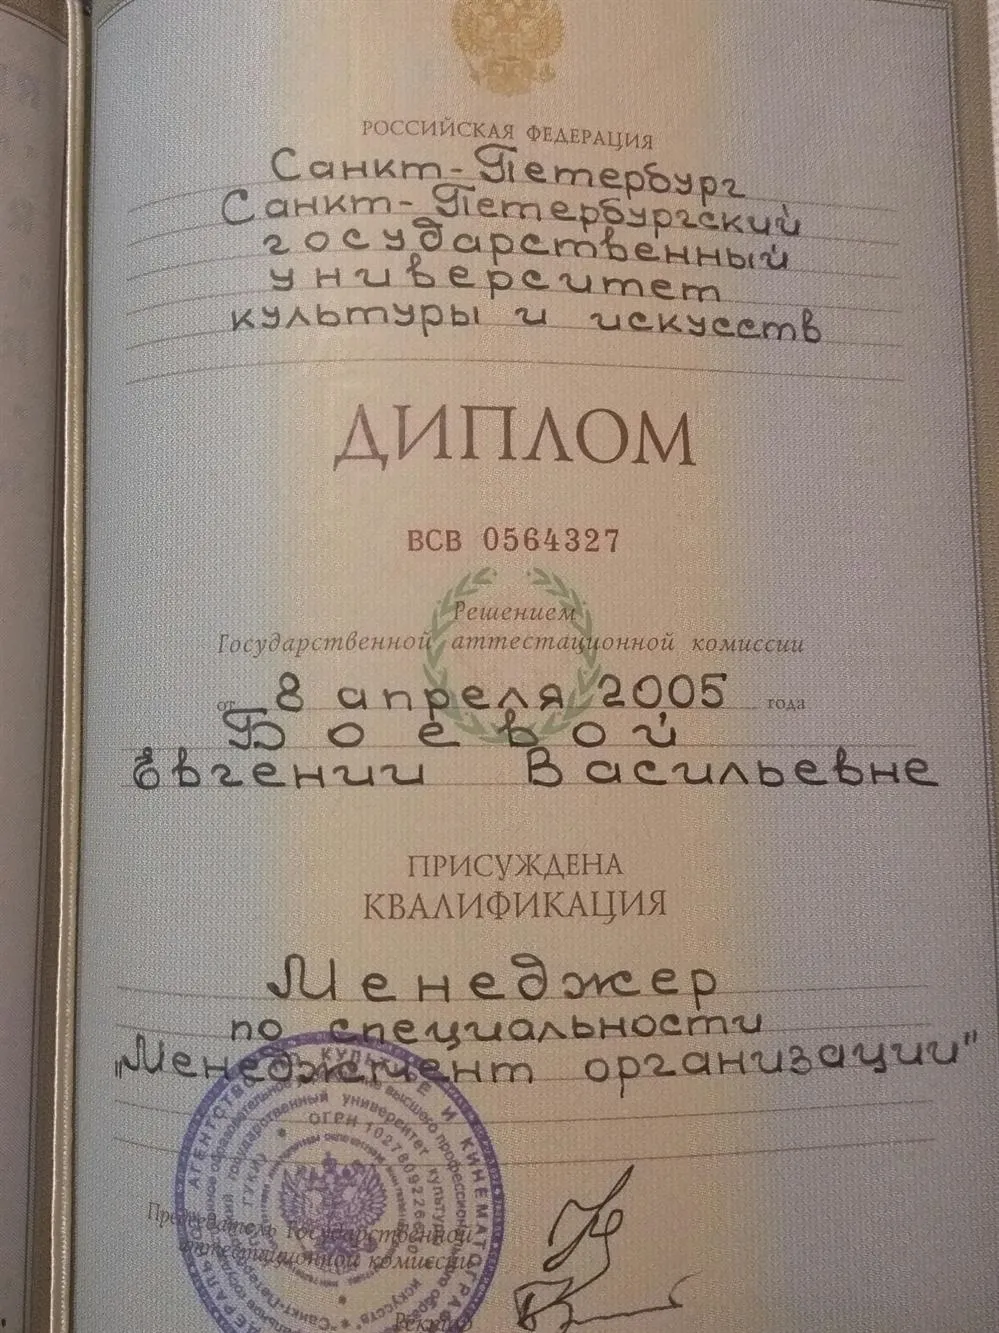 РОССИЙСКАЯ ФЕДЕРАЦИЯ
Санкт-Петербург
Санкт-Петербургский
государственный
университет
культуры и искусств
ДИПЛОМ
ВСВ 0564327
Решением
Государственной аттестационной комиссии
от 8 апреля 2005 года
Боевой
Евгении Васильевне
ПРИСУЖДЕНА
КВАЛИФИКАЦИЯ
Менеджер
по специальности
"Менеджмент организации"
АГЕНТСТВО ПО КУЛЬТУРЕ И КИНЕМАТОГРАФ
государственный университет культуры
искусств
ОГРН
Председатель Государственной
аттестационной комиссии
Ректор